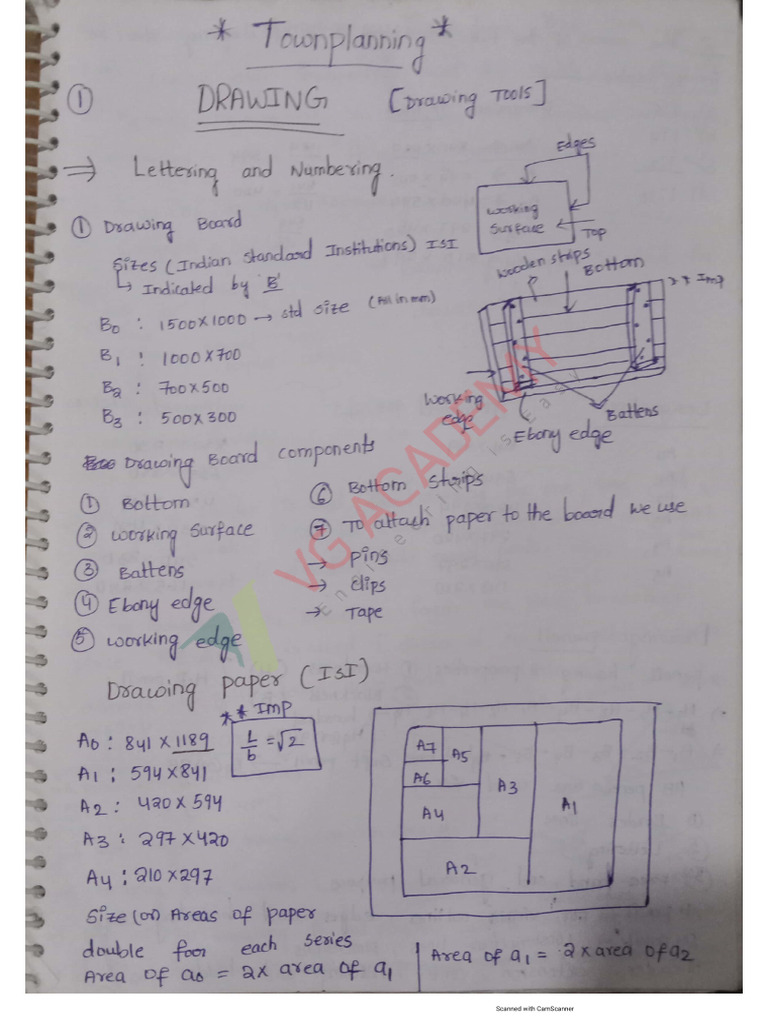 * Townplanning *
① DRAWING [Drawing TOOLS]
⇒ Lettering and Numbering.
① Drawing Board
Sizes (Indian Standard Institutions) ISI
↳ Indicated by 'B'
B0 : 1500×1000 → std size (All in mm)
B1 : 1000×700
B2 : 700×500
B3 : 500×300
Edges
working
surface
Top
wooden strips
Bottom
** Imp
Working
edge
Battens
Ebony edge
Drawing Board components
① Bottom
② working surface
③ Battens
④ Ebony edge
⑤ working edge
⑥ Bottom strips
⑦ To attach paper to the board we use
→ pins
→ clips
→ Tape
VG ACADEMY
Engineering is Easy
Drawing paper (ISI)
** IMP
L/b = √2
A0 : 841 × 1189
A1 : 594×841
A2 : 420 × 594
A3 : 297×420
A4 : 210×297
A7
A5
A6
A3
A4
A1
A2
Size (or) Areas of paper
double for each series
Area of a0 = 2x area of a1
Area of a1 = 2x area of a2
Scanned with CamScanner